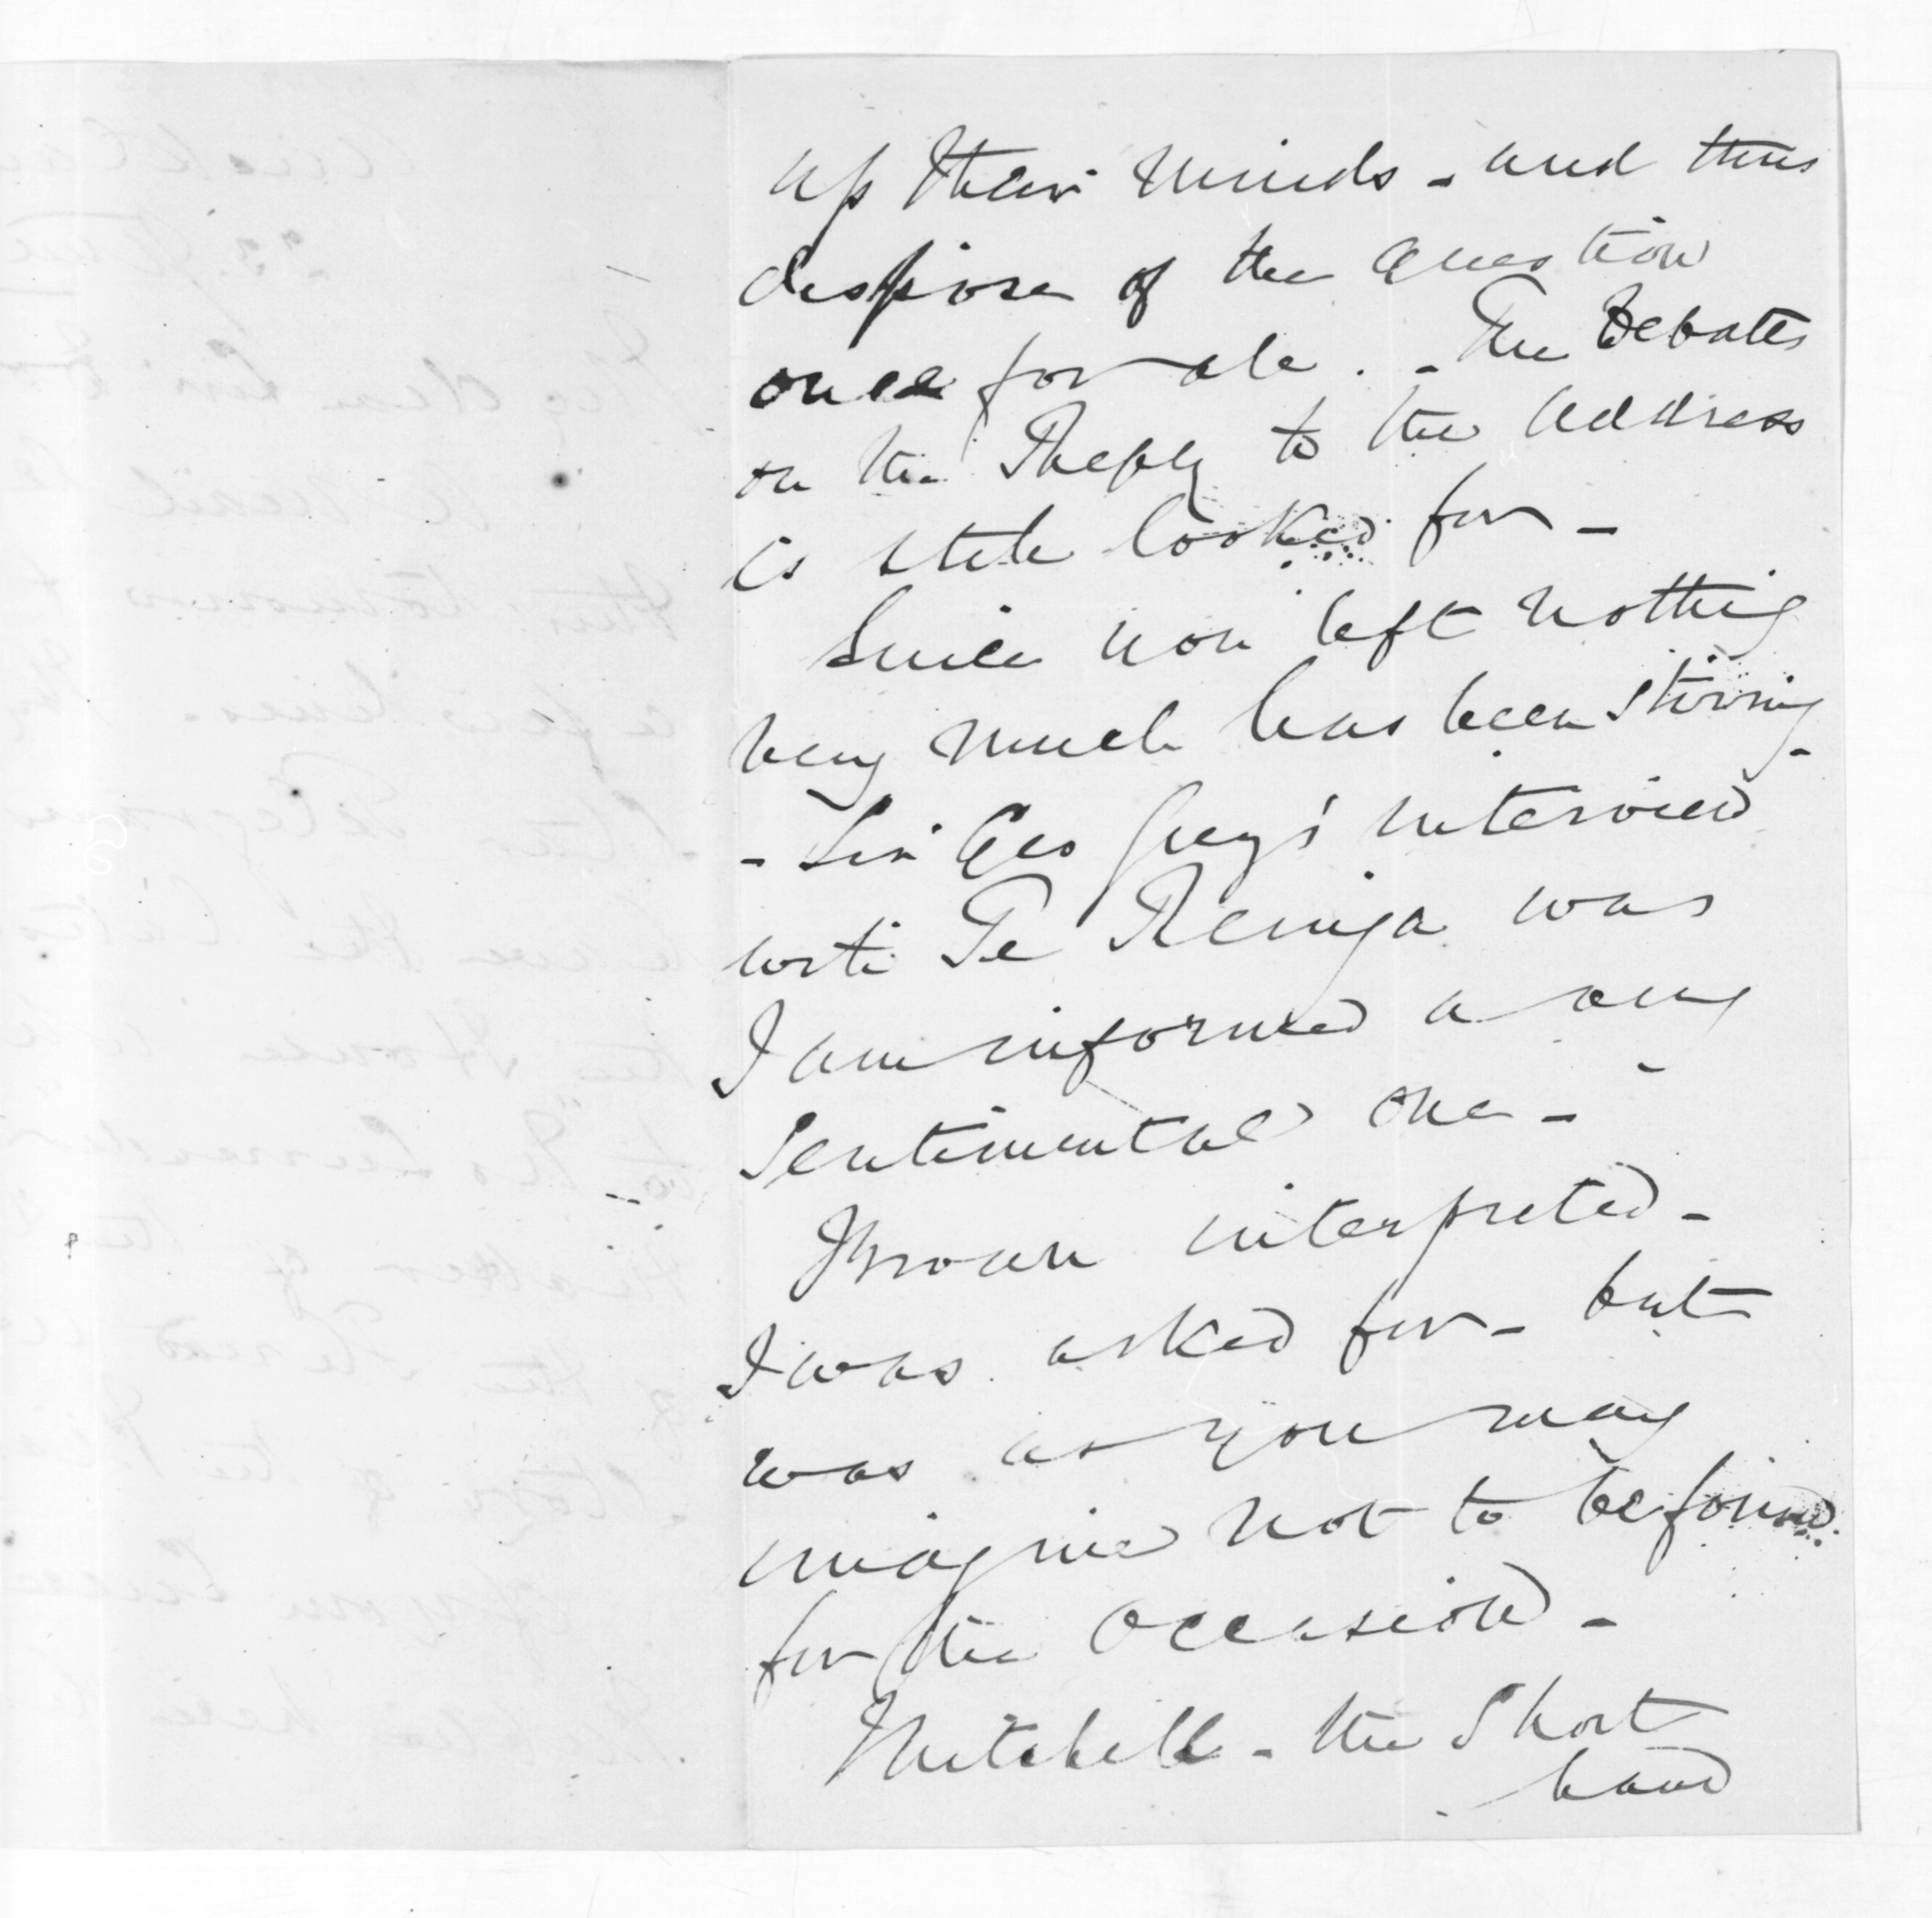 up their minds - and thus
dispose of the Question
once for all. - The Debates
on the Reply to the Address
is still looked for -
Since you left nothing
very much has been stirring -
- Sir Geo Grey's interview
with Te Renga was
I am informed a very
sentimental one -
Brown interpreted -
I was asked for - but
was as you may
imagine not to be found
for the occasion -
Mitchell - the Short
hand